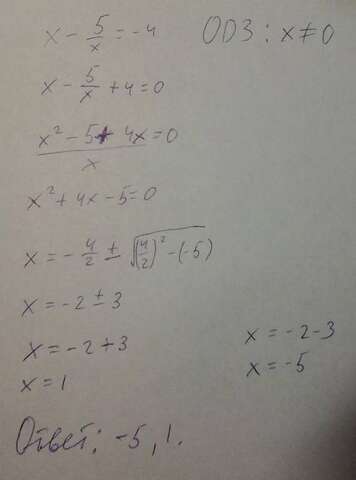 x - 5/x = -4 ОДЗ: x ≠ 0
x - 5/x + 4 = 0
(x² - 5 + 4x)/x = 0
x² + 4x - 5 = 0
x = -4/2 ± √((4/2)² - (-5))
x = -2 ± 3
x = -2 + 3 x = -2 - 3
x = 1 x = -5
Ответ: -5, 1.